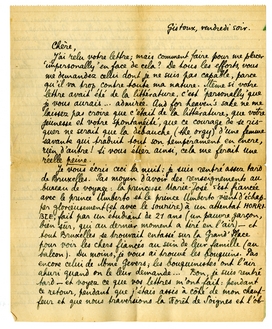 Gistoux, vendredi soir.
Chère,
J'ai relu votre lettre, mais comment faire pour me placer
"impersonally" en face de cela? De tous les efforts vous
me demandez celui dont je ne suis pas capable, parce
qu'il va trop contre toute ma nature. Même si votre
lettre avait été de la littérature, c'est personally que
je vous aurais... admirée. And for heaven's sake ne me
laissez pas croire que c'était de la littérature, que votre
jeunesse et votre spontanéité, que ce courage de se
ne serait que la débauche (the orgy) d'une femme
savante qui traduit tout son tempérament en encre,
rien d'autre! Si vous étiez ainsi, cela me ferait une
réelle peine.
Je vous écris cette nuit; je suis rentré assez tard
de Bruxelles. Le moyen d'avoir des renseignements au
bureau de voyage: la princesse Marie-José s'est fiancée
avec le prince Umberto et le prince Umberto vient d'échap-
per glorieusement (et avec le sourire) à un attentat
fait par un étudiant de 21 ans (un pauvre garçon,
bien sûr, qui au dernier moment a tiré en l'air!) — et
tout Bruxelles se trouvait entassé sur la Grand'Place
pour voir les chers fiancés au sein de leur famille (au
balcon). Du moins, je vous ai trouvé les fougueux. Pas
encore celui de Mme Goris, les Bruxellois ont l'air
ahuri quand on le leur demande... Bon, je suis rentré
tard — et voyez ce que vos lettres m'ont fait: pendant
ce retour, pendant que j'étais assis à côté de mon chauf-
feur et que nous traversions la Forêt de Soignes et l'ob-